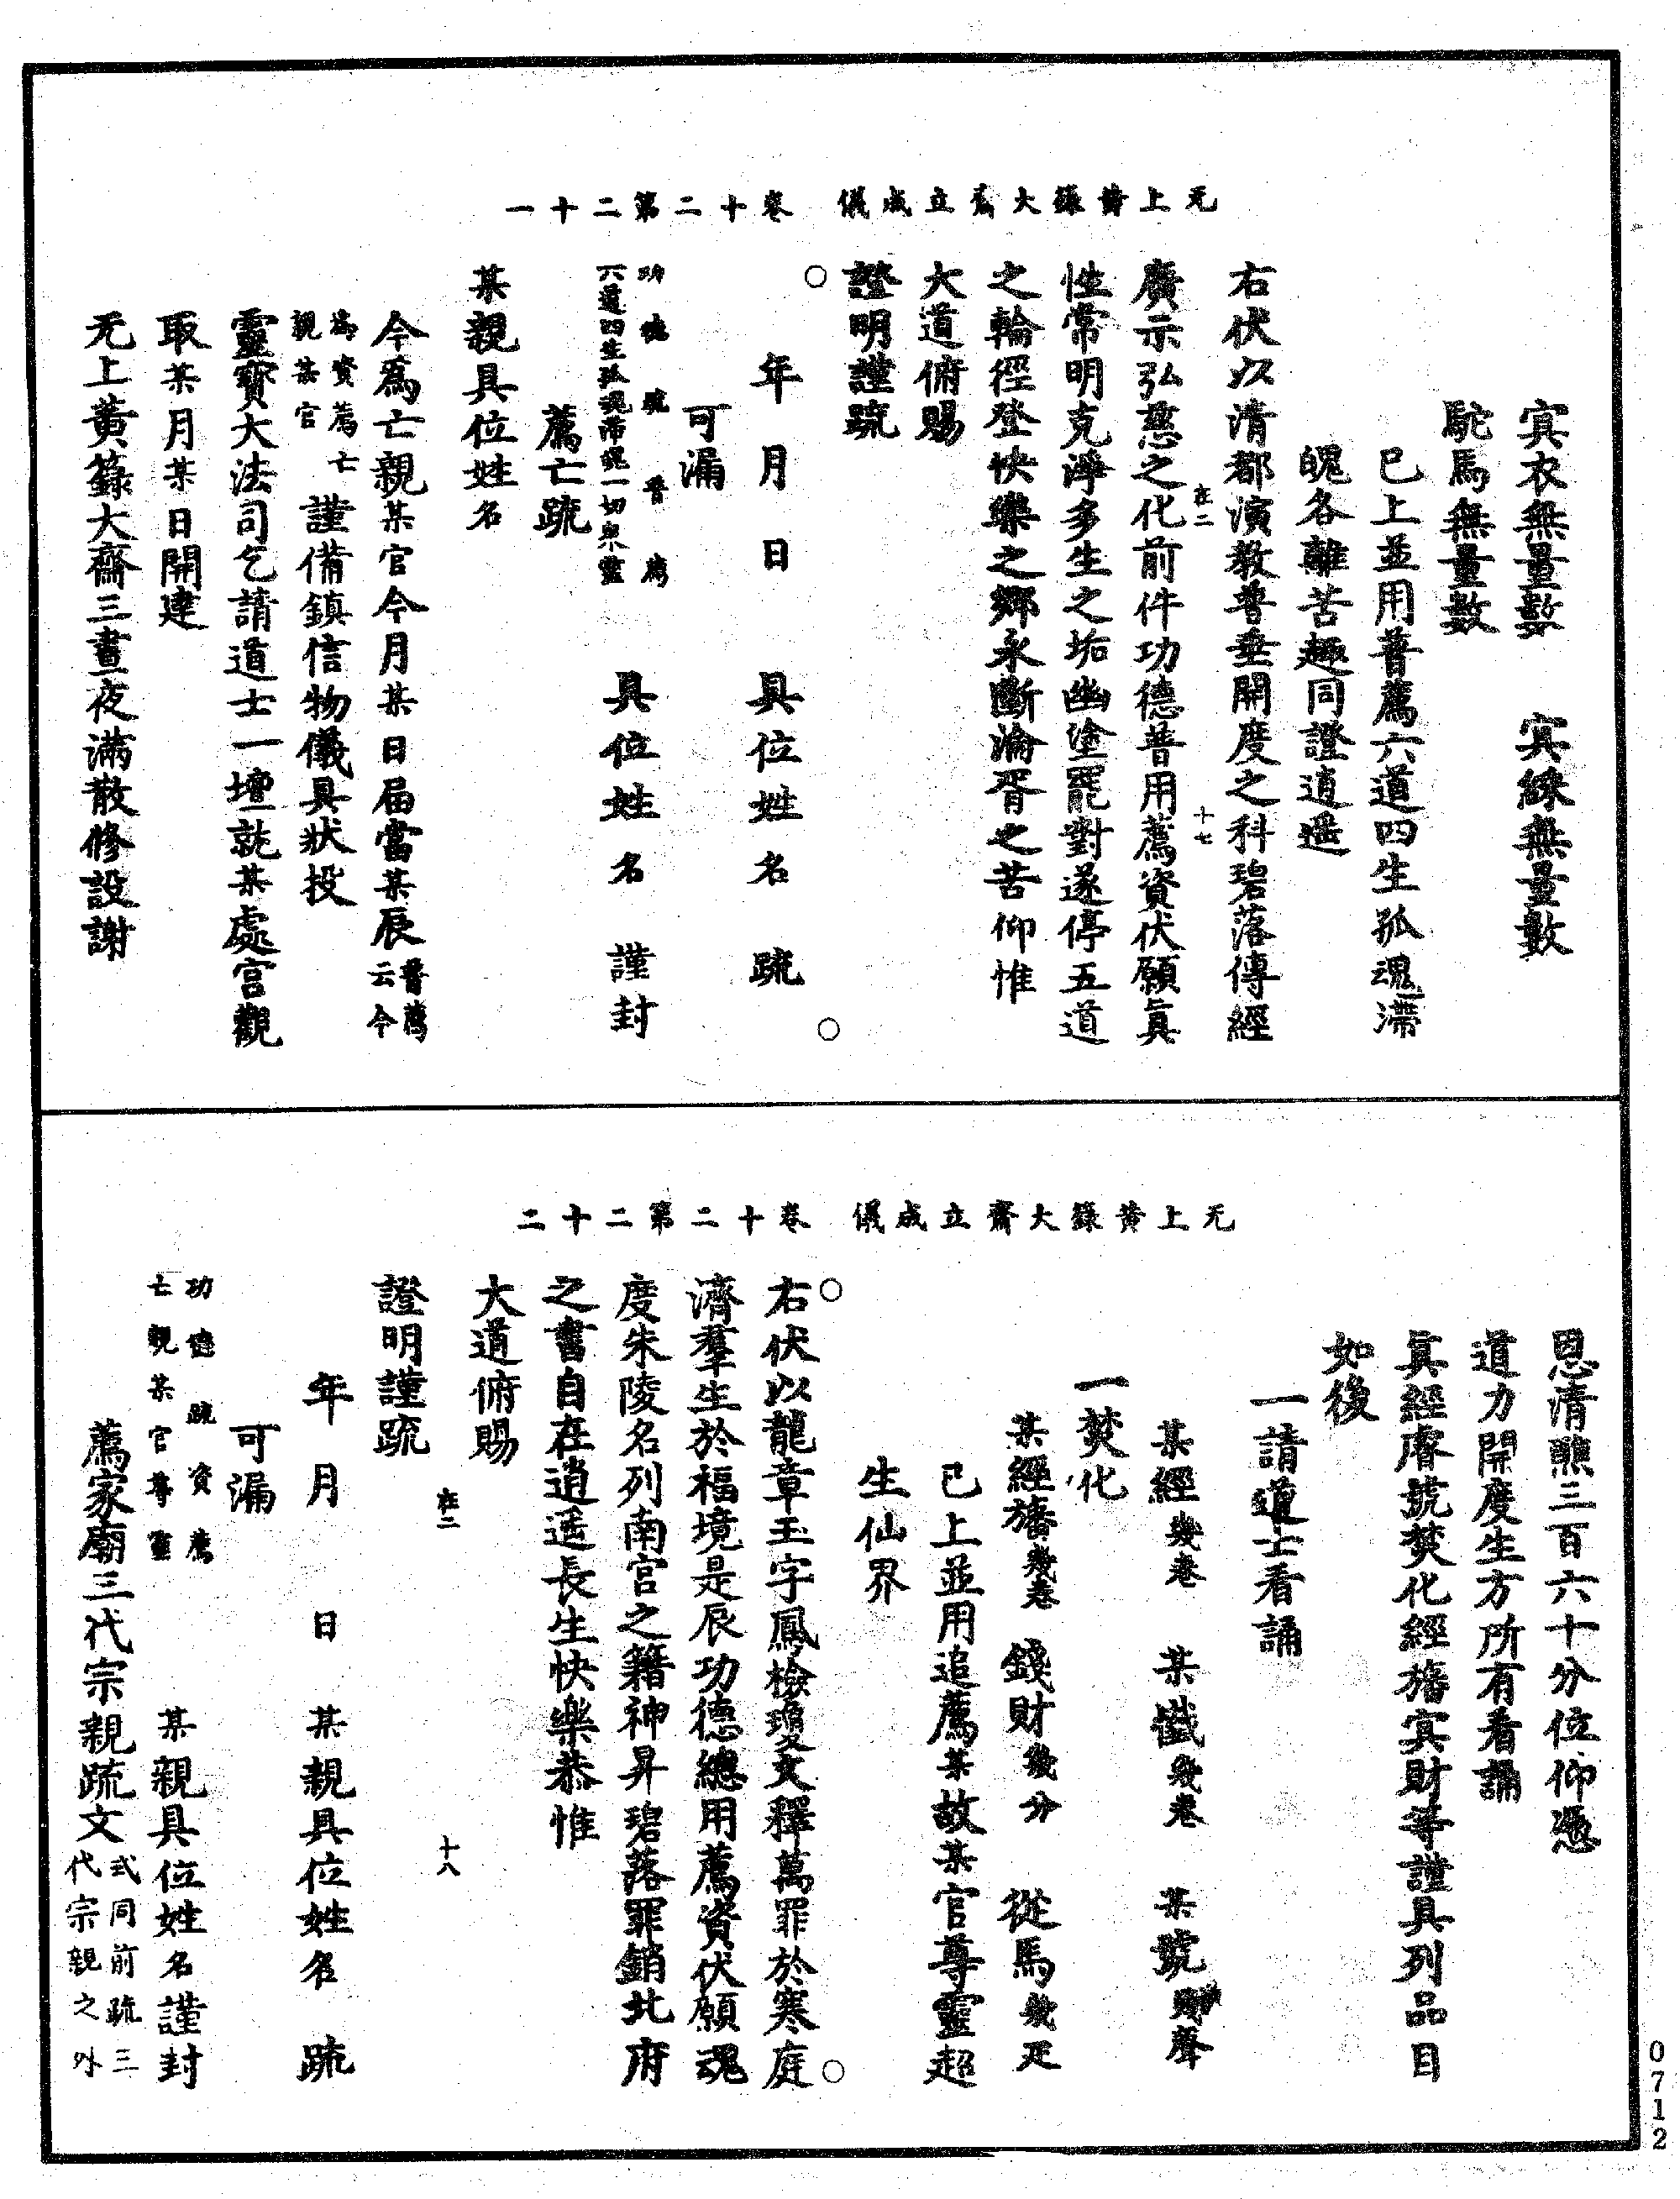 无上黃籙大齋立成儀 卷十二第二十一
㝠衣無量數 㝠綵無量數
駝馬無量數
已上並用普薦六道四生孤魂滯
魄各離苦趣同證逍遥
右伏以清都演教普垂開度之科碧落傳經
在二 十七
廣示弘慈之化前件功德普用薦資伏願眞
性常明克淨多生之垢幽塗罷對遂停五道
之輪徑登快樂之鄉永斷淪胥之苦仰惟
大道俯賜
證明謹疏
○ ○
年 月 日 具位姓名 疏
可漏
功德疏普薦
六道四生孤魂滯魄一切衆靈
具位姓名 謹封
薦亡疏
某親具位姓名
今爲亡親某官今月某日届當某辰普薦云今
爲資薦亡親某官
謹備鎮信物儀具狀投
靈寶大法司乞請道士一壇就某處宫觀
取某月某日開建
无上黃籙大齋三晝夜滿散修設謝
无上黃籙大齋立成儀 卷十二第二十二
恩清醮三百六十分位仰憑
道力開度生方所有看誦
眞經睿號焚化經旛㝠財等謹具列品目
如後
一請道士看誦
某經幾卷 某懺幾卷 某號聲
一焚化
某經旛幾卷 錢財幾分 從馬幾疋
已上並用追薦某故某官尊靈超
生仙界
○ ○
右伏以龍章玉字鳳檢瓊文釋萬罪於寒庭
濟羣生於福境是辰功德總用薦資伏願魂
度朱陵名列南宫之籍神昇碧落罪銷北府
之書自在逍遥長生快樂恭惟
大道俯賜
在二 十八
證明謹疏
年 月 日 某親具位姓名 疏
可漏
功德疏資薦
亡親某官尊靈
某親具位姓名謹封
薦家廟三代宗親疏文式同前疏三代宗親之外
0712